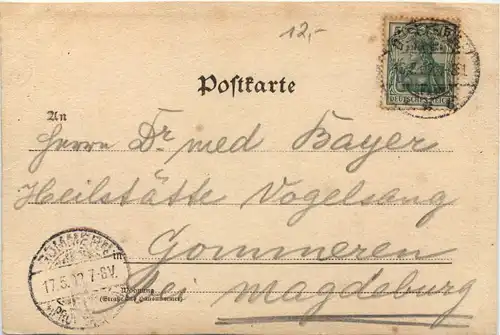 12,-
DEUTSCHES REICH
Postkarte
An
Herrn Dr med Bayer
Heilstätte Vogelsang
in Gommeren
bei Magdeburg
Wohnung
(Straße und Hausnummer)
17.5. 7-8V.